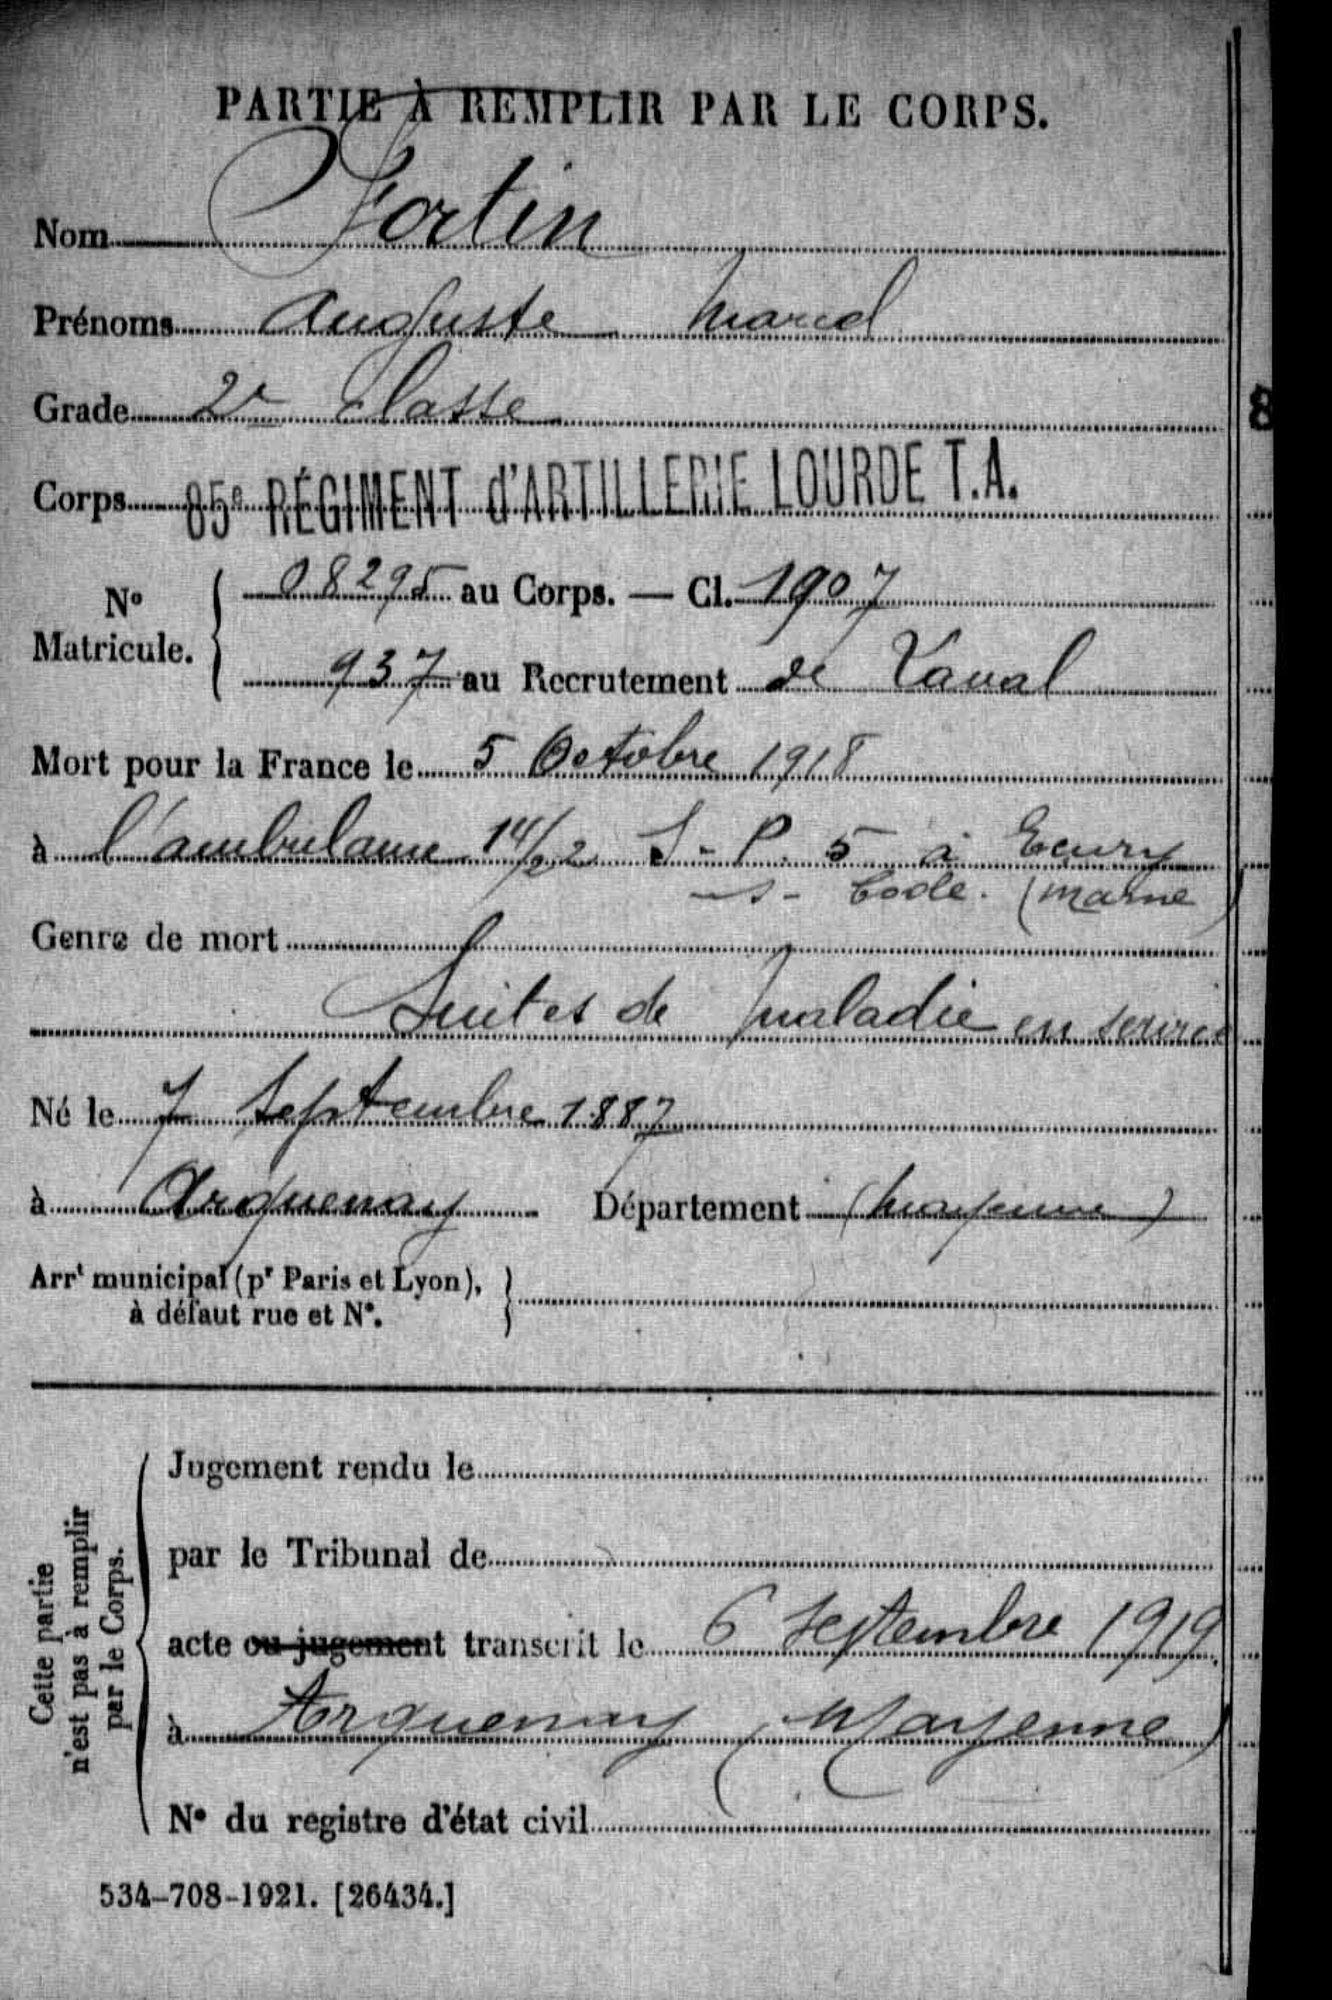 PARTIE À REMPLIR PAR LE CORPS.
Nom Fortin
Prénoms Auguste Marcel
Grade 2e classe
Corps 85e RÉGIMENT d'ARTILLERIE LOURDE T.A.
No Matricule. 08295 au Corps. — Cl. 1907
937 au Recrutement de Laval
Mort pour la France le 5 Octobre 1918
à l'ambulance 14/22 S-P. 5 à Ecury
-s- Coole. (Marne)
Genre de mort
Suites de maladie en service
Né le 7 Septembre 1887
à Arquenay Département (Mayenne)
Arrt municipal (pr Paris et Lyon),
à défaut rue et No.
Cette partie
n'est pas à remplir
par le Corps.
Jugement rendu le
par le Tribunal de
acte ou jugement transcrit le 6 Septembre 1919.
à Arquenay (Mayenne)
No du registre d'état civil
534-708-1921. [26434.]